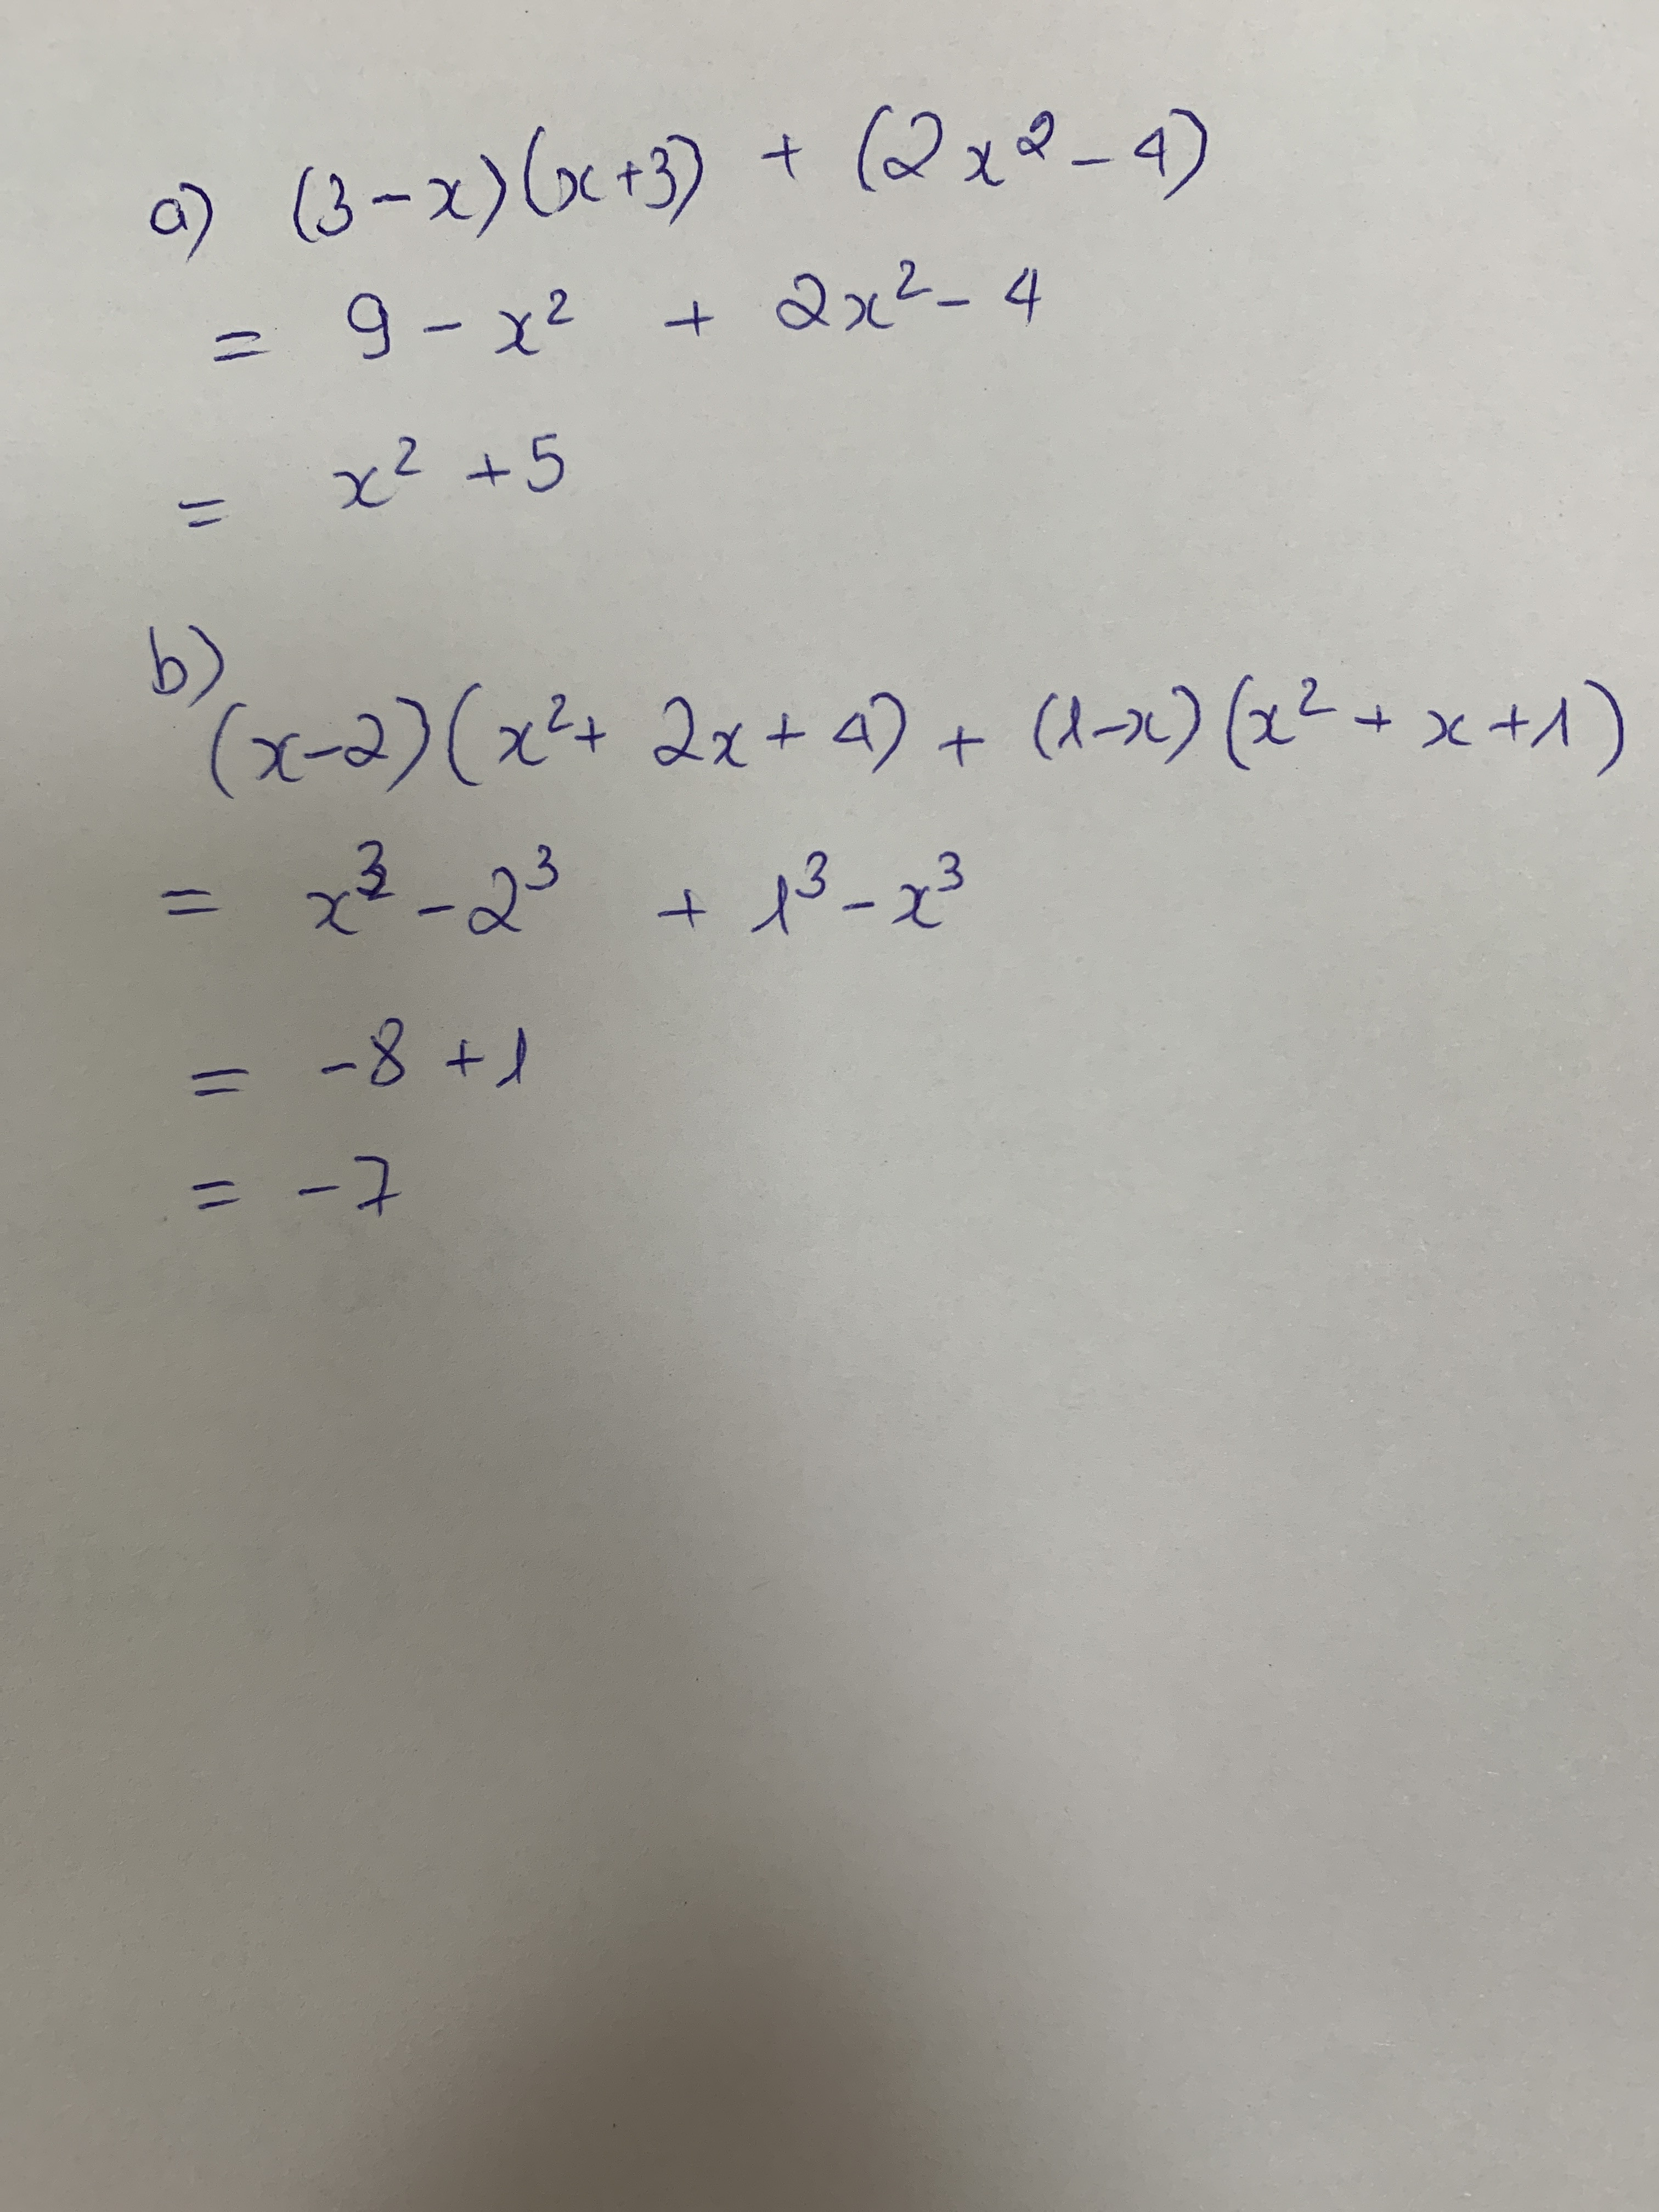 a) (3-x)(x+3) + (2x² - 4)
= 9 - x² + 2x² - 4
= x² + 5
b)
(x-2)(x² + 2x + 4) + (1-x)(x² + x + 1)
= x³ - 2³ + 1³ - x³
= -8 + 1
= -7